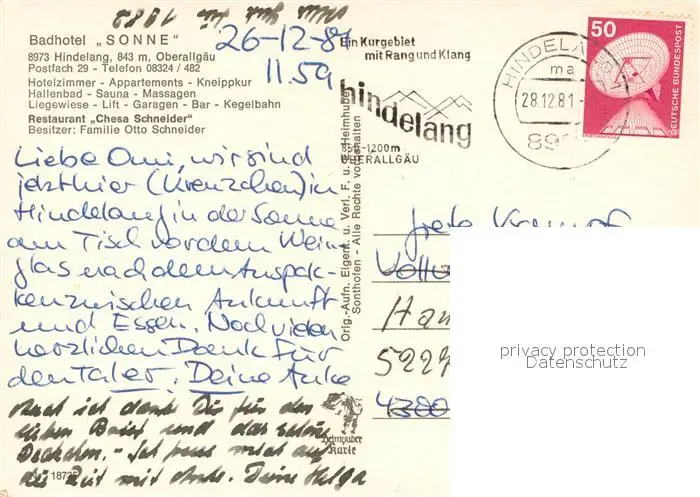 Badhotel „SONNE"
8973 Hindelang, 843 m, Oberallgäu
Postfach 29 - Telefon 08324 / 482
Hotelzimmer - Appartements - Kneippkur
Hallenbad - Sauna - Massagen
Liegewiese - Lift - Garagen - Bar - Kegelbahn
Restaurant „Chesa Schneider"
Besitzer: Familie Otto Schneider
26-12-81
11.59
Liebe Omi, wir sind
jetzt hier (Kreuzchen) in
Hindelang in der Sonne
am Tisch vor dem Wein-
glas nach dem Auspak-
ken zwischen Ankunft
und Essen. Noch vielen
herzlichen Dank für
den Taler. Deine Anke
Auch ich danke Dir für den
lieben Brief und das schöne
Ich freue mich auf
die Zeit mit Anke. Deine Helga
18735
Orig.-Aufn. Eigent. u. Verl. F. u. Heimhuber
Sonthofen - Alle Rechte vorbehalten
Heimhuber
Karte
Ein Kurgebiet
mit Rang und Klang
hindelang
850-1200m
OBERALLGÄU
HINDELANG
28.12.81
50
DEUTSCHE BUNDESPOST
5227
4300
privacy protection
Datenschutz
1982